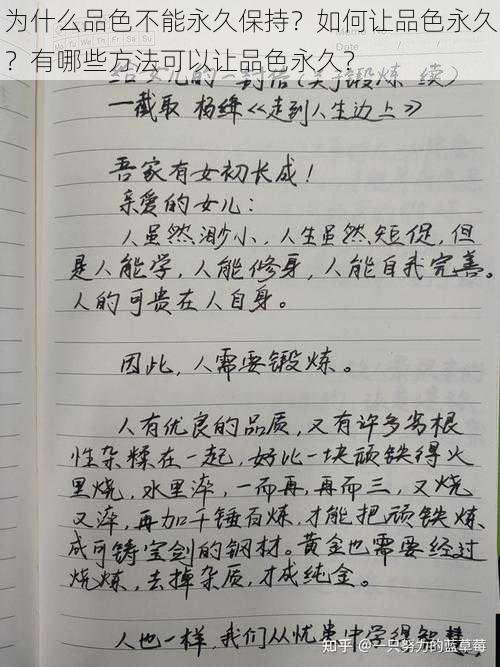 为什么品色不能永久保持？如何让品色永久
？有哪些方法可以让品色永久？
给女儿的一封信（关于锻炼 续）
一截取 杨绛《走到人生边上》
吾家有女初长成！
亲爱的女儿：
人虽然渺小，人生虽然短促，但
是人能学，人能修身，人能自我完善。
人的可贵在人自身。
因此，人需要锻炼。
人有优良的品质，又有许多劣根
性杂糅在一起，好比一块顽铁得火
里烧，水里淬，一而再，再而三，又烧
又淬，再加千锤百炼，才能把顽铁炼
成可铸宝剑的钢材。黄金也需要经过
烧炼，去掉杂质，才成纯金。
人也一样，我们从忧患中学得智慧，
知乎 @一只努力的蓝草莓